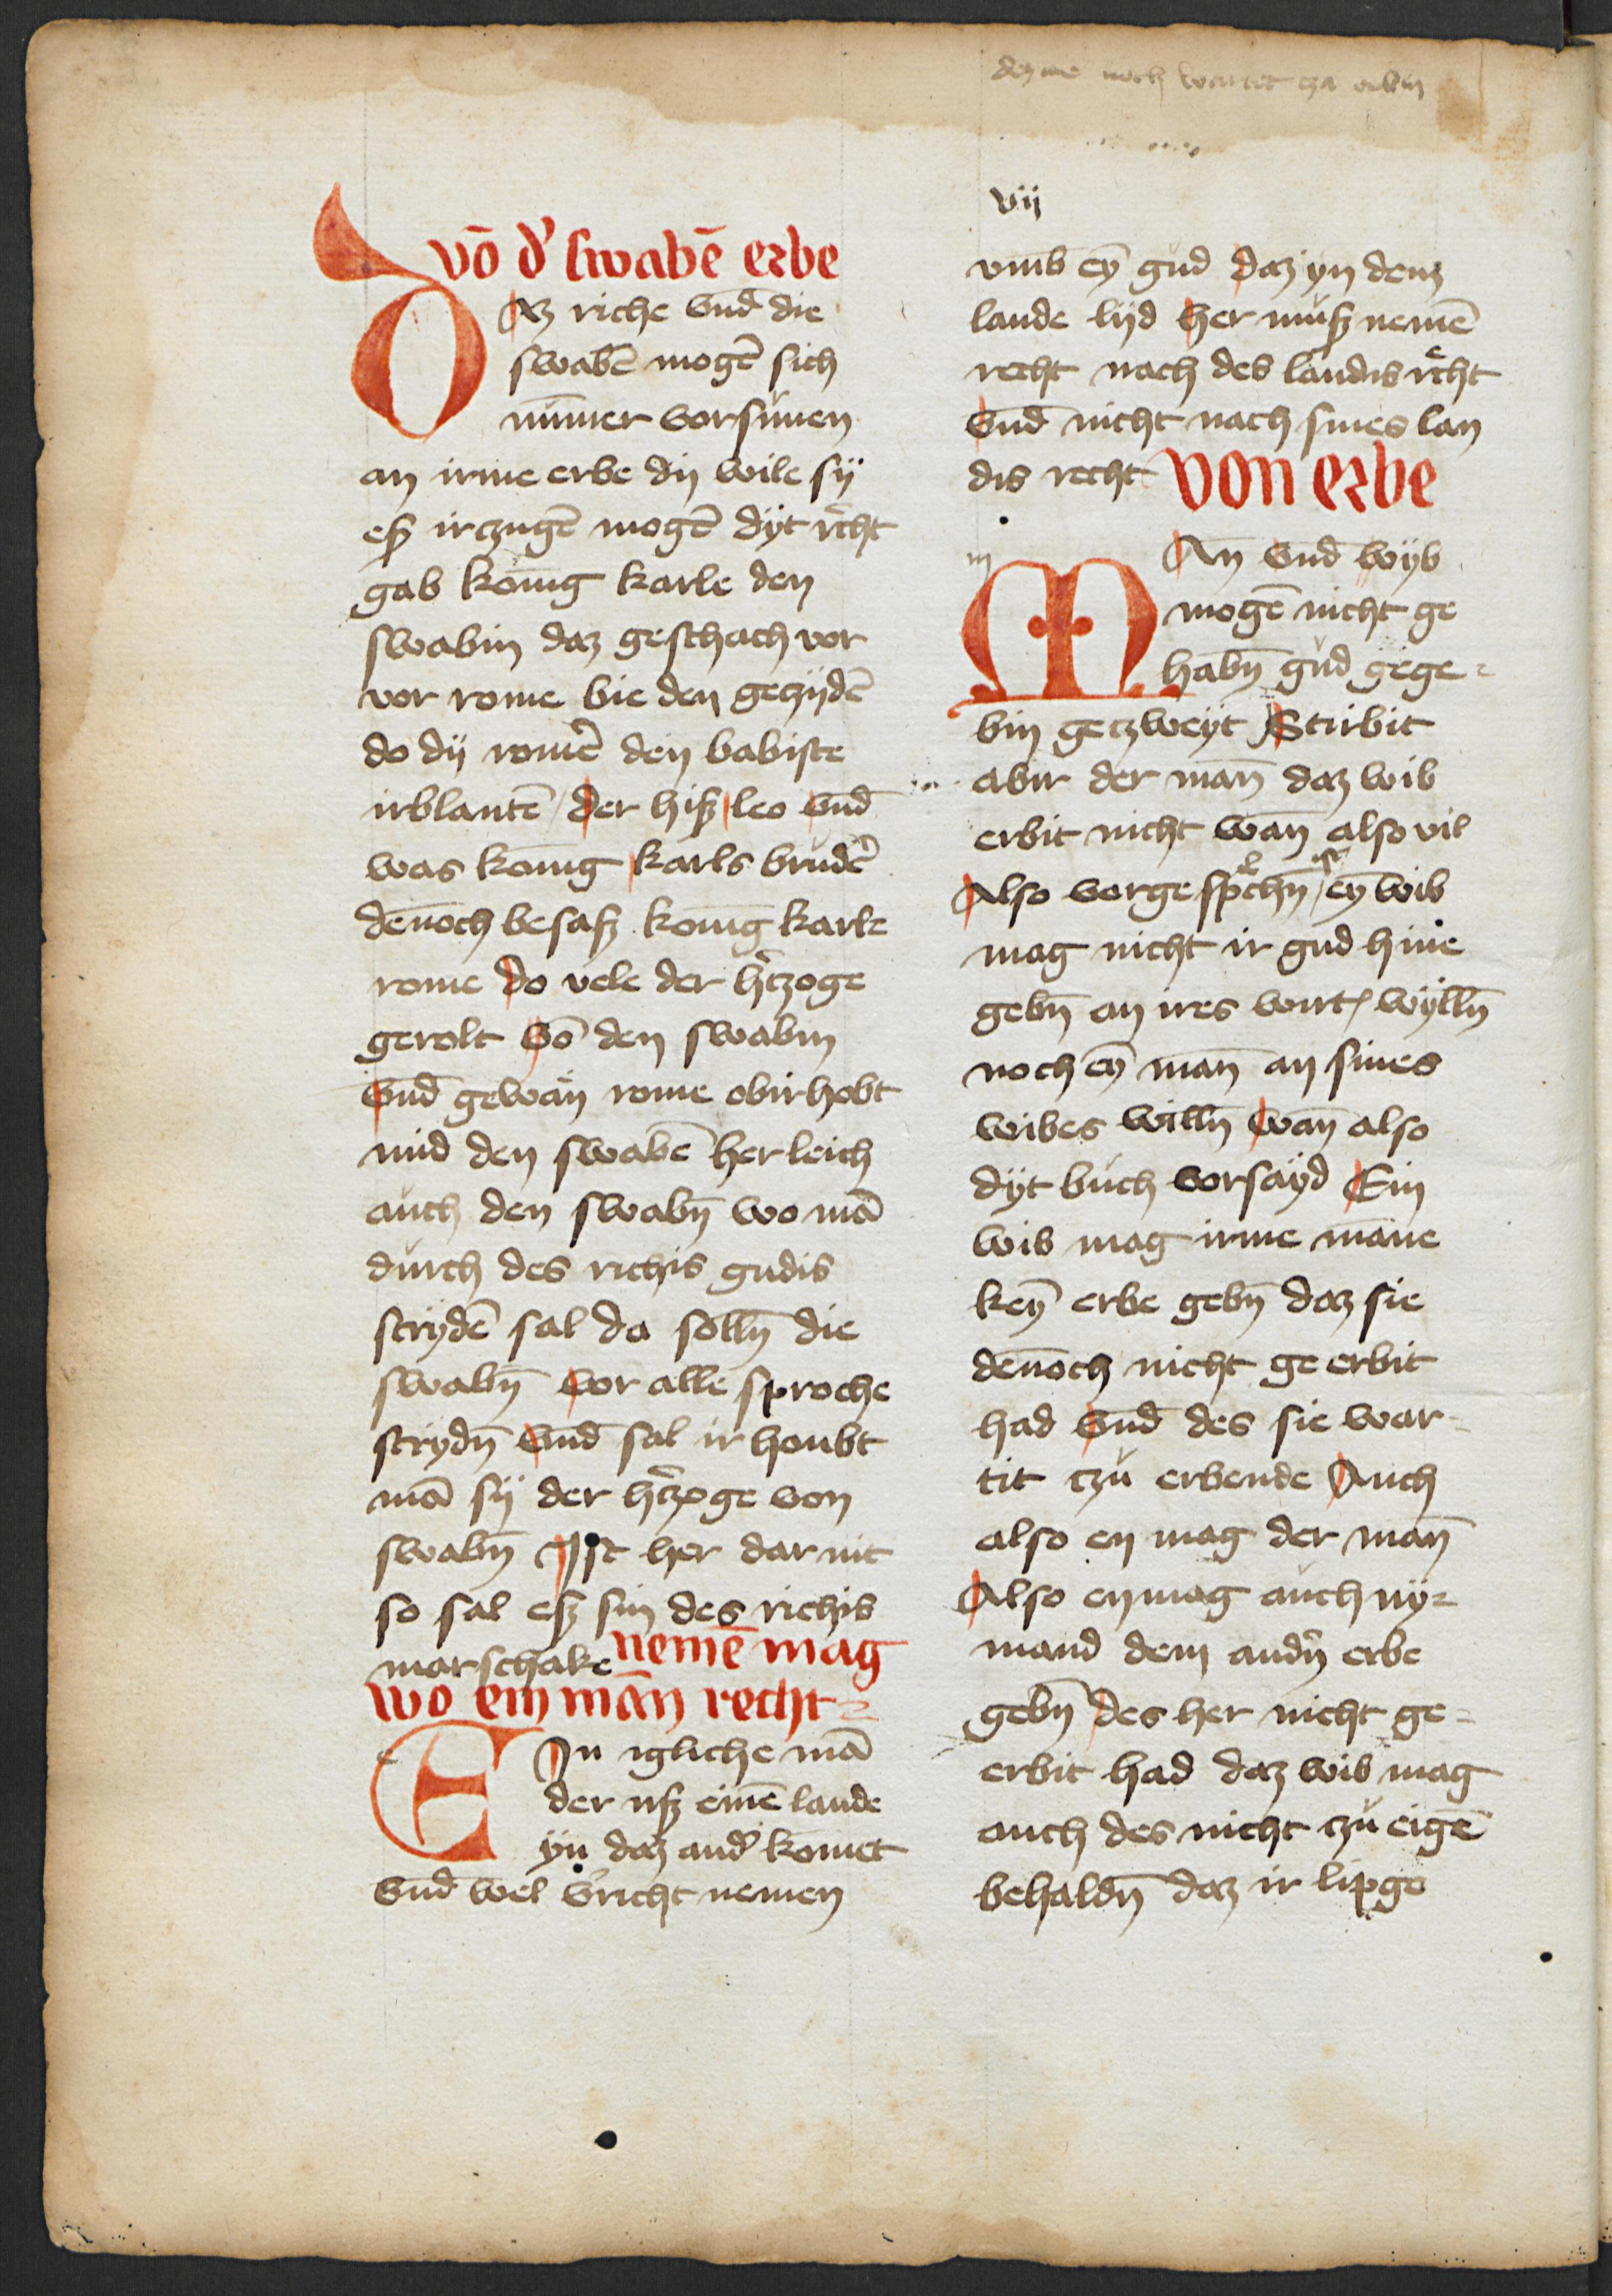 vij
vō d' swabē erbe
Daz riche vnd die
swabē mogē sich
nūmer vorsümen
an irme erbe dy wile sy
eß irczugē mogē dyt recht
gab konig karle den
swabin daz geschach vor
vor rome bie den geczijdē
do dij romē den babiste
irblantē / der hiß leo vnd
was konig karls brudē
dēnoch besaß konig karle
rome do vele der h'czoge
gerolt vō den swabin
vnd gewan rome obirhobt
mid den swabē her leich
auch den swabn̄ wo mā
durch des richis gudis
strydē sal da solln̄ die
swabn̄ vor alle sproche
strydn̄ vnd sal ir houbt
mā sij der h'czoge von
swabn̄ Jst her dar nit
so sal eß sin des richis
marschake nemē mag
wo ein man recht
Ein igliche mā
der uß eimē lande
yn daz and' komet
vnd wel v'richt nemen
vmb eȳ gud daz yn dem
lande lijd her muß nemē
recht nach des landis recht
vnd nicht nach sines lan
dis recht von erbe
Man vnd wyb
mogē nicht ge
habn̄ gud gege-
bin geczweyt Stirbit
abir der man̄ daz wib
erbit nicht wan̄ also vil
Also vorgesp°chn̄ ist / eȳ wib
mag nicht ir gud hine
gebn̄ an ires wirt' wylln̄
noch eȳ man̄ an sines
wibes willn̄ wan̄ also
dyt buch vorsayd Ein
wib mag irme māne
keȳ erbe gebn̄ daz sie
dēnoch nicht ge erbit
had vnd des sie war-
tit czu erbende Auch
also en mag der man̄
Also en mag auch ny-
mand dem andn̄ erbe
gebn̄ des her nicht ge-
erbit had daz wib mag
auch des nicht czu eigē
behaldn̄ daz ir lipge